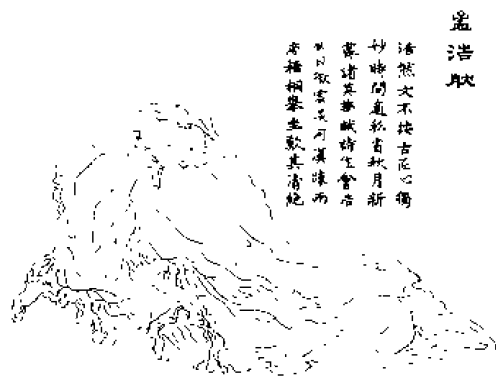 孟浩然
浩然文不按古匠心獨
妙時間遊秘省秋月新
霽諸英聯賦詩作會浩
然曰微雲淡河漢疎雨
滴梧桐舉坐歎其清絕